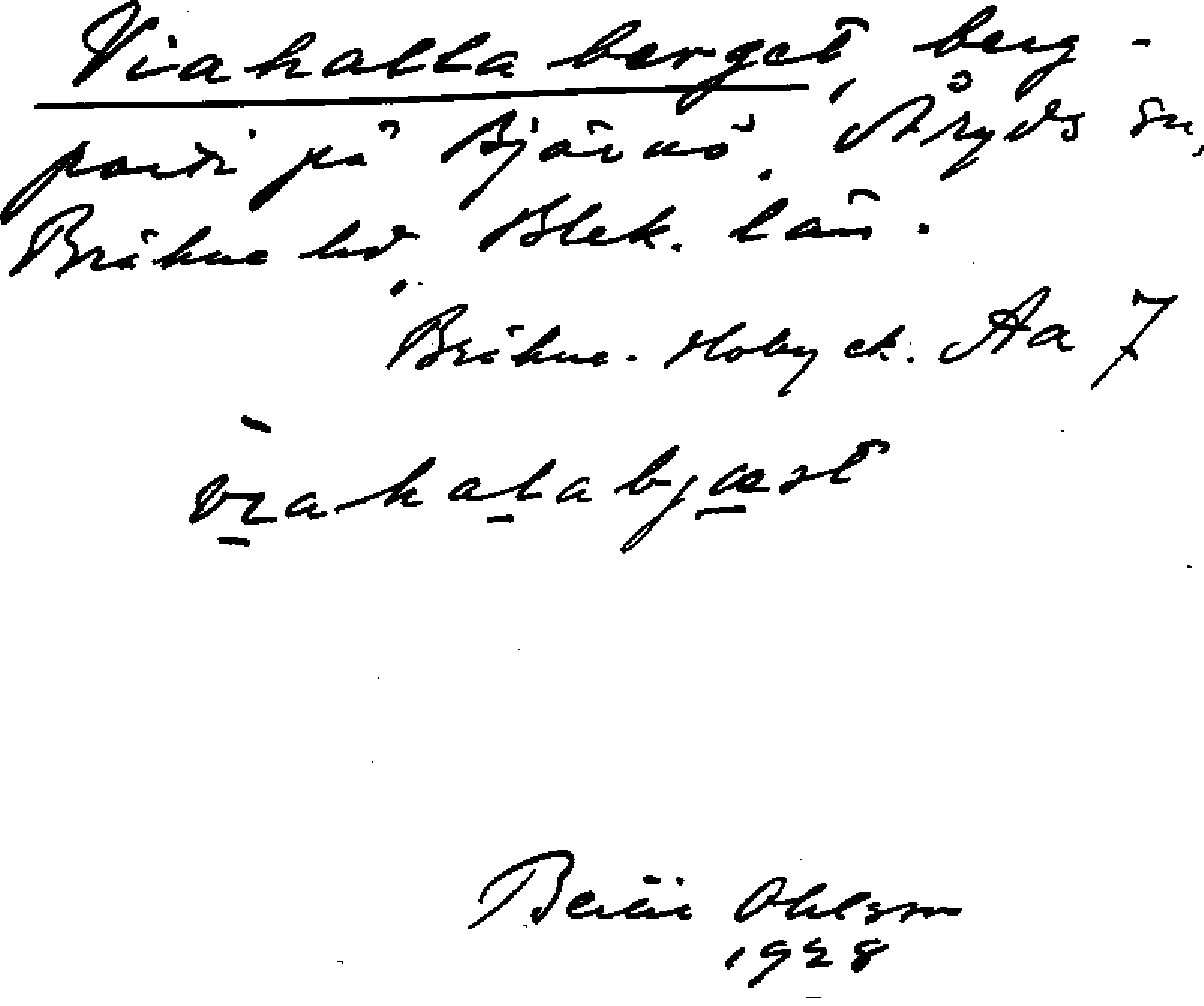 Viahallaberget, berg-
parti på Björnö, Åryds sn,
Bräkne hd, Blek. län.
Bräkne-Hoby ek. Aa 7
Bertil Ohlsson
1928